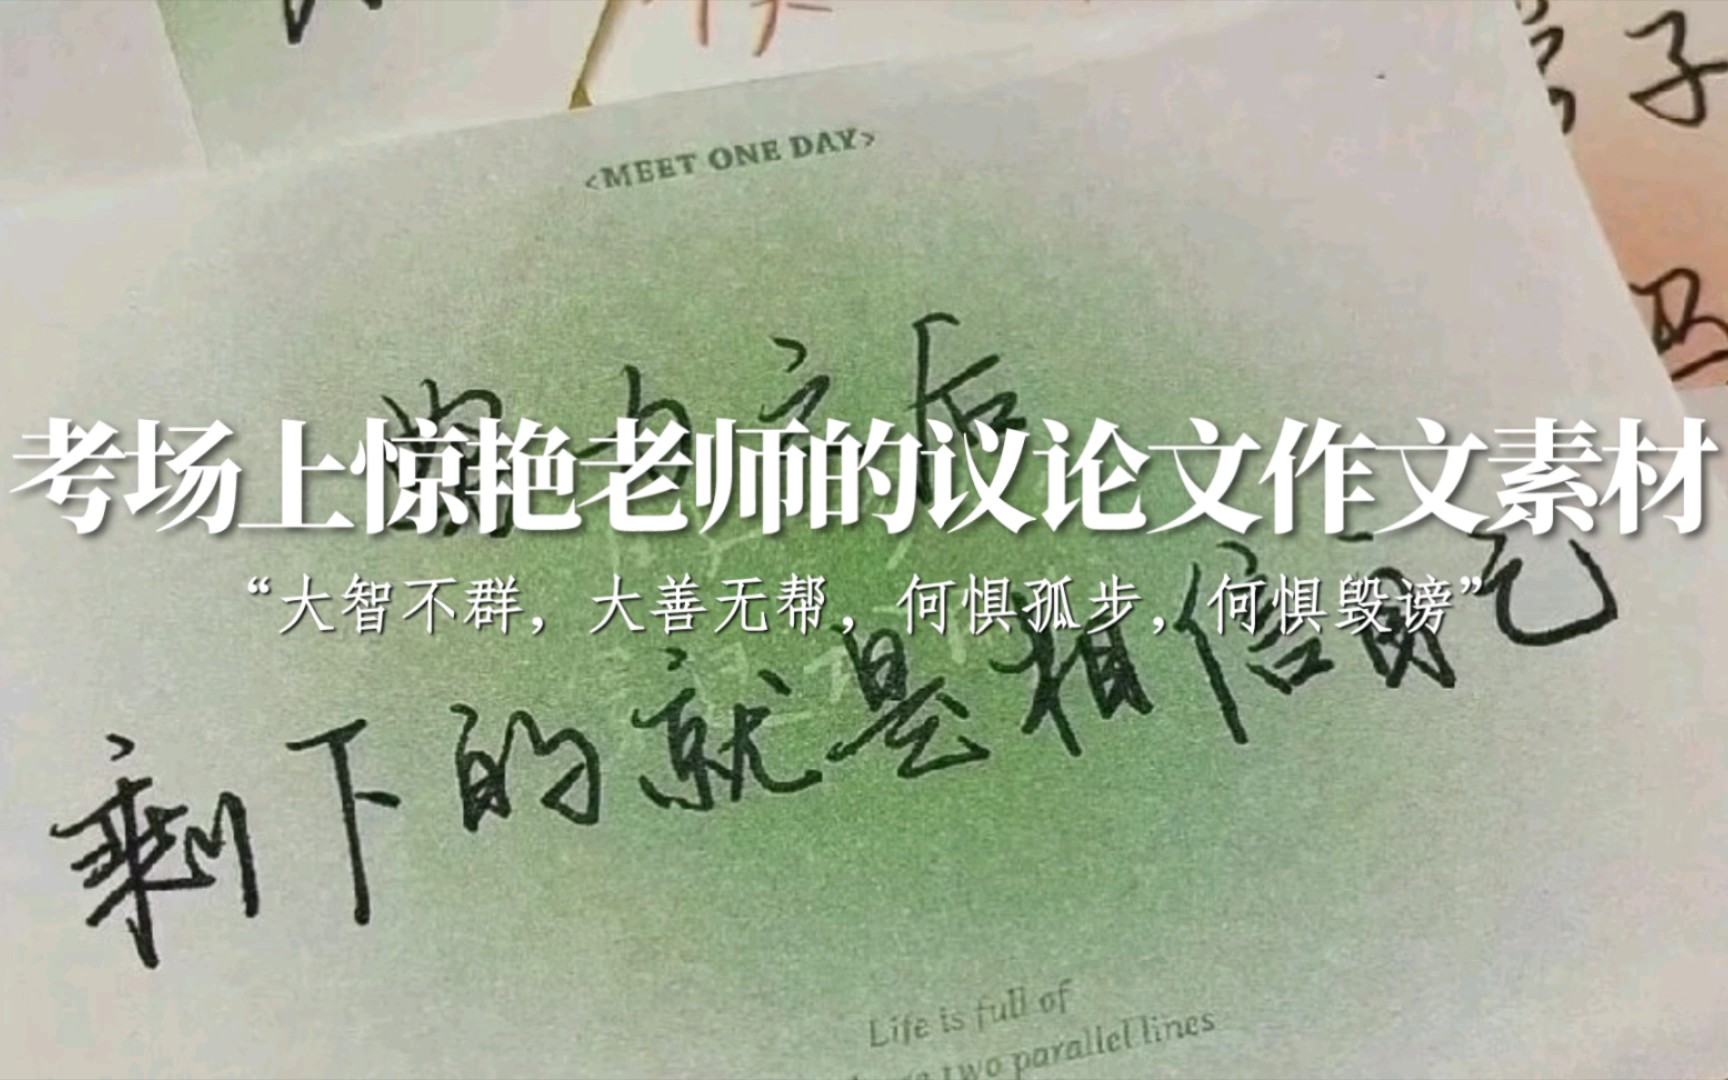 <MEET ONE DAY>
子
之后
考场上惊艳老师的议论文作文素材
“大智不群，大善无帮，何惧孤步，何惧毁谤”
剩下的就是相信自己
Life is full of
two parallel lines